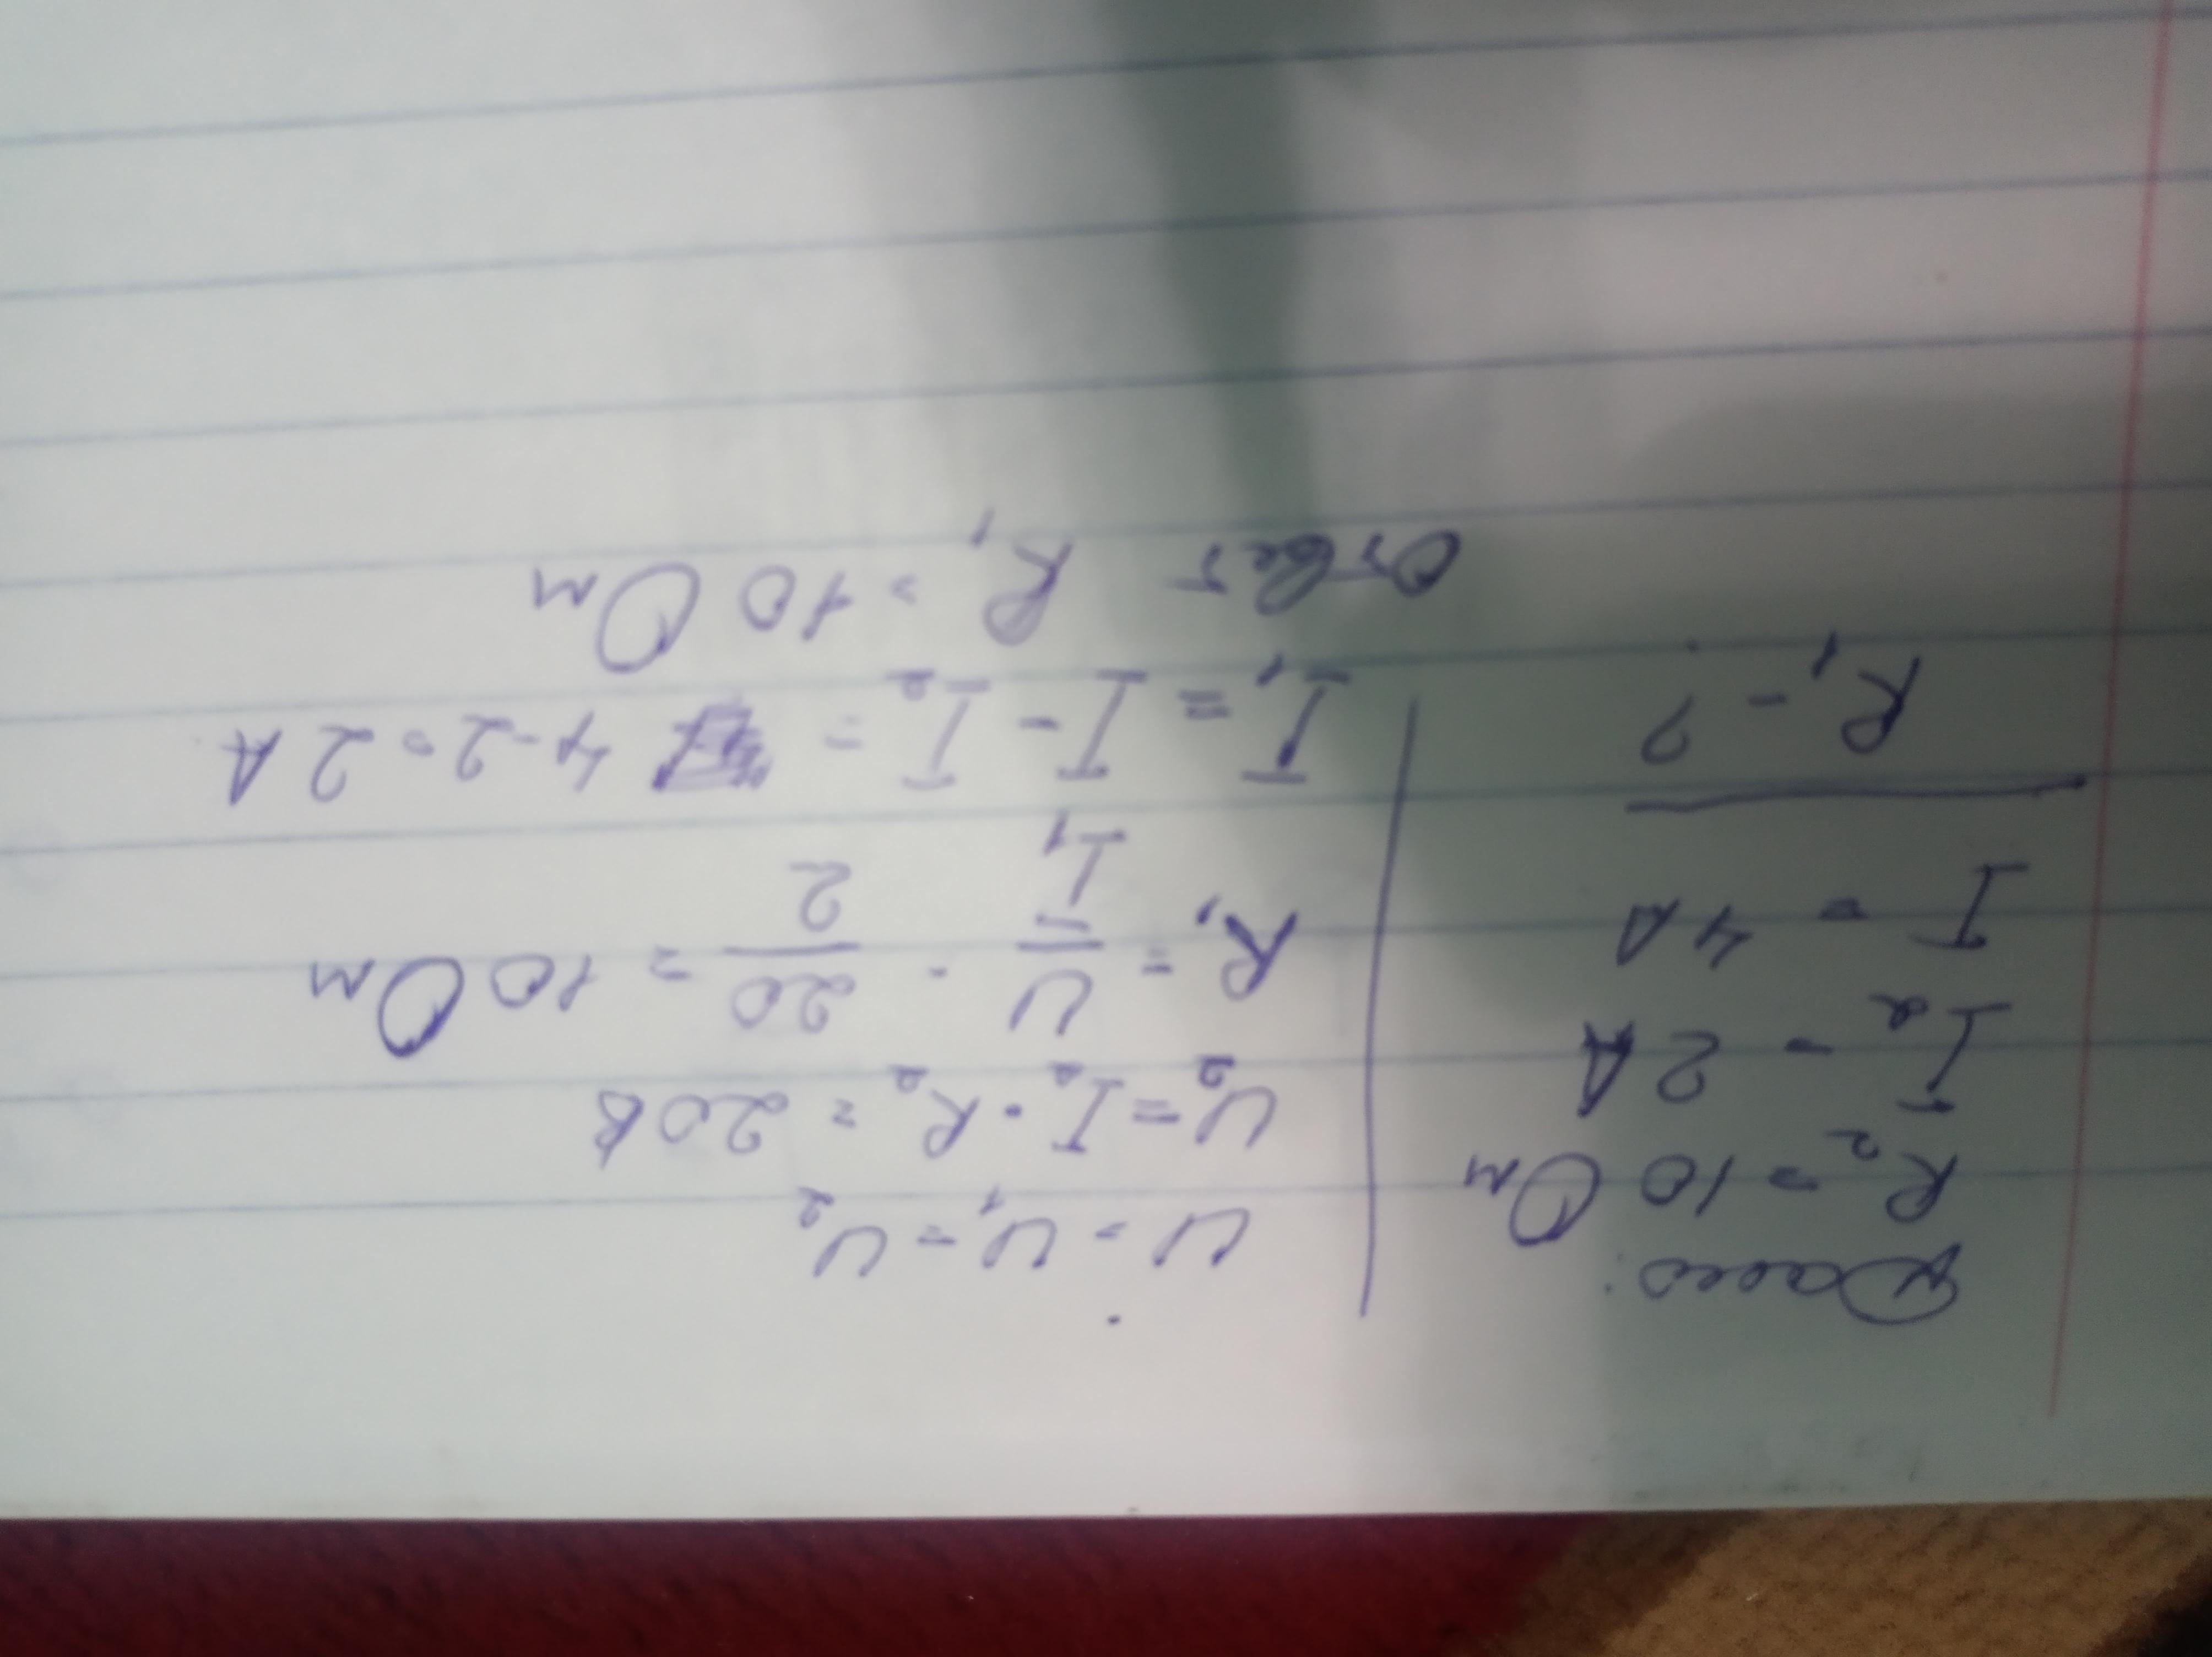 Дано:
R₂ = 10 Ом
I₂ - 2А
I = 4А
R₁ - ?
U = U₁ = U₂
U₂ = I₂ · R₂ = 20В
R₁ = U/I₁ = 20/2 = 10 Ом
I₁ = I - I₂ = 4 - 2 = 2 А
Ответ R₁ = 10 Ом